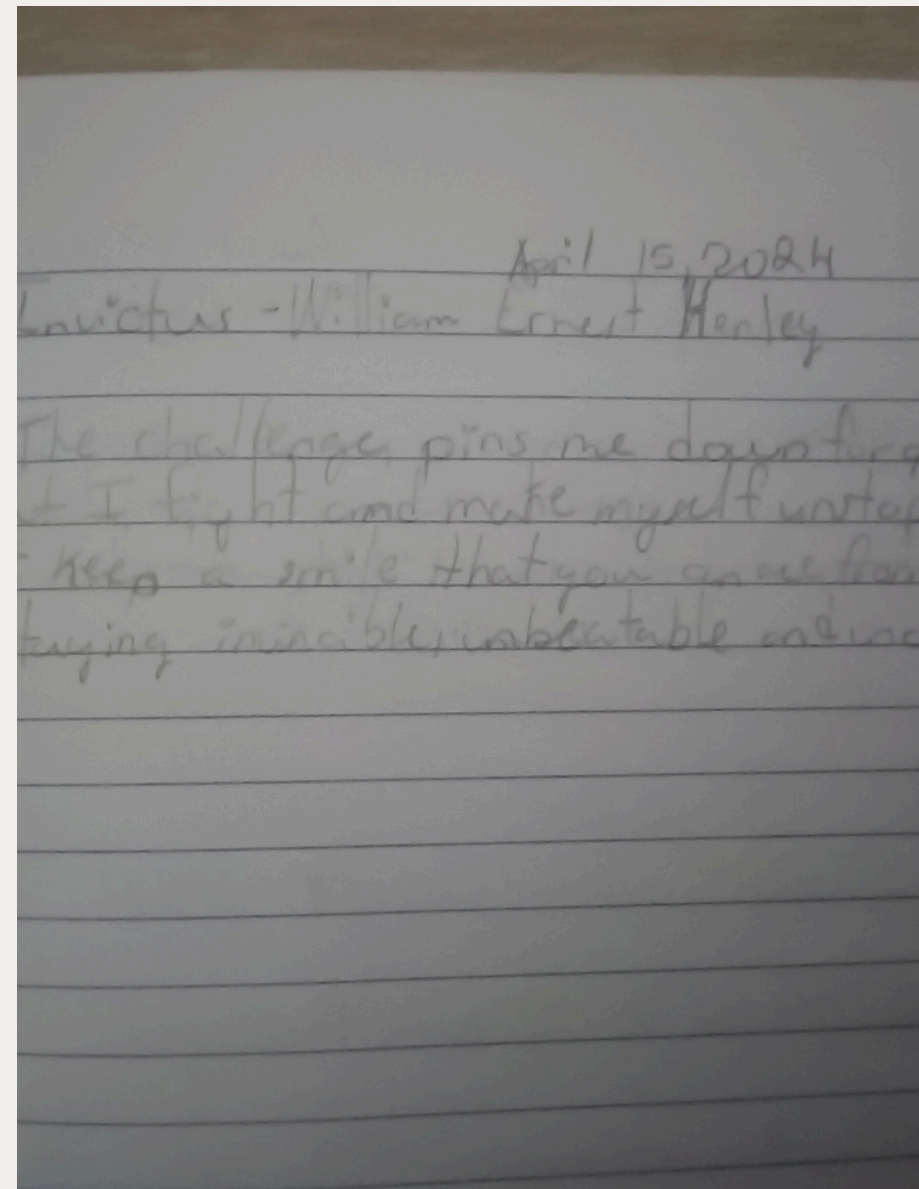 April 15, 2024
Invictus - William Ernest Henley
The challenge pins me down
I fight and make myself
keep a smile that you
invincible, unbeatable and